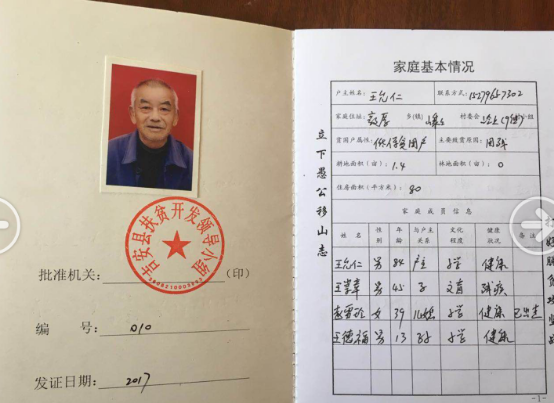 吉安县扶贫开发领导小组
批准机关：（印）
编 号：010
发证日期：2017
立下愚公移山志
家庭基本情况
户主姓名：王允仁 联系方式：
家庭住址：敖厚 乡(镇) 村委会 组
贫困户属性：低保贫困户 主要致贫原因：因残
耕地面积（亩）：1.4 林地面积（亩）：0
住房面积（平方米）：80
家庭成员信息
姓名 性别 年龄 与户主关系 文化程度 健康状况 备注
王允仁 男 84 户主 小学 健康
男 45 子 文盲 残疾
女 39 儿媳 小学 健康 已出走
王德福 男 13 孙子 小学 健康
- 1 -